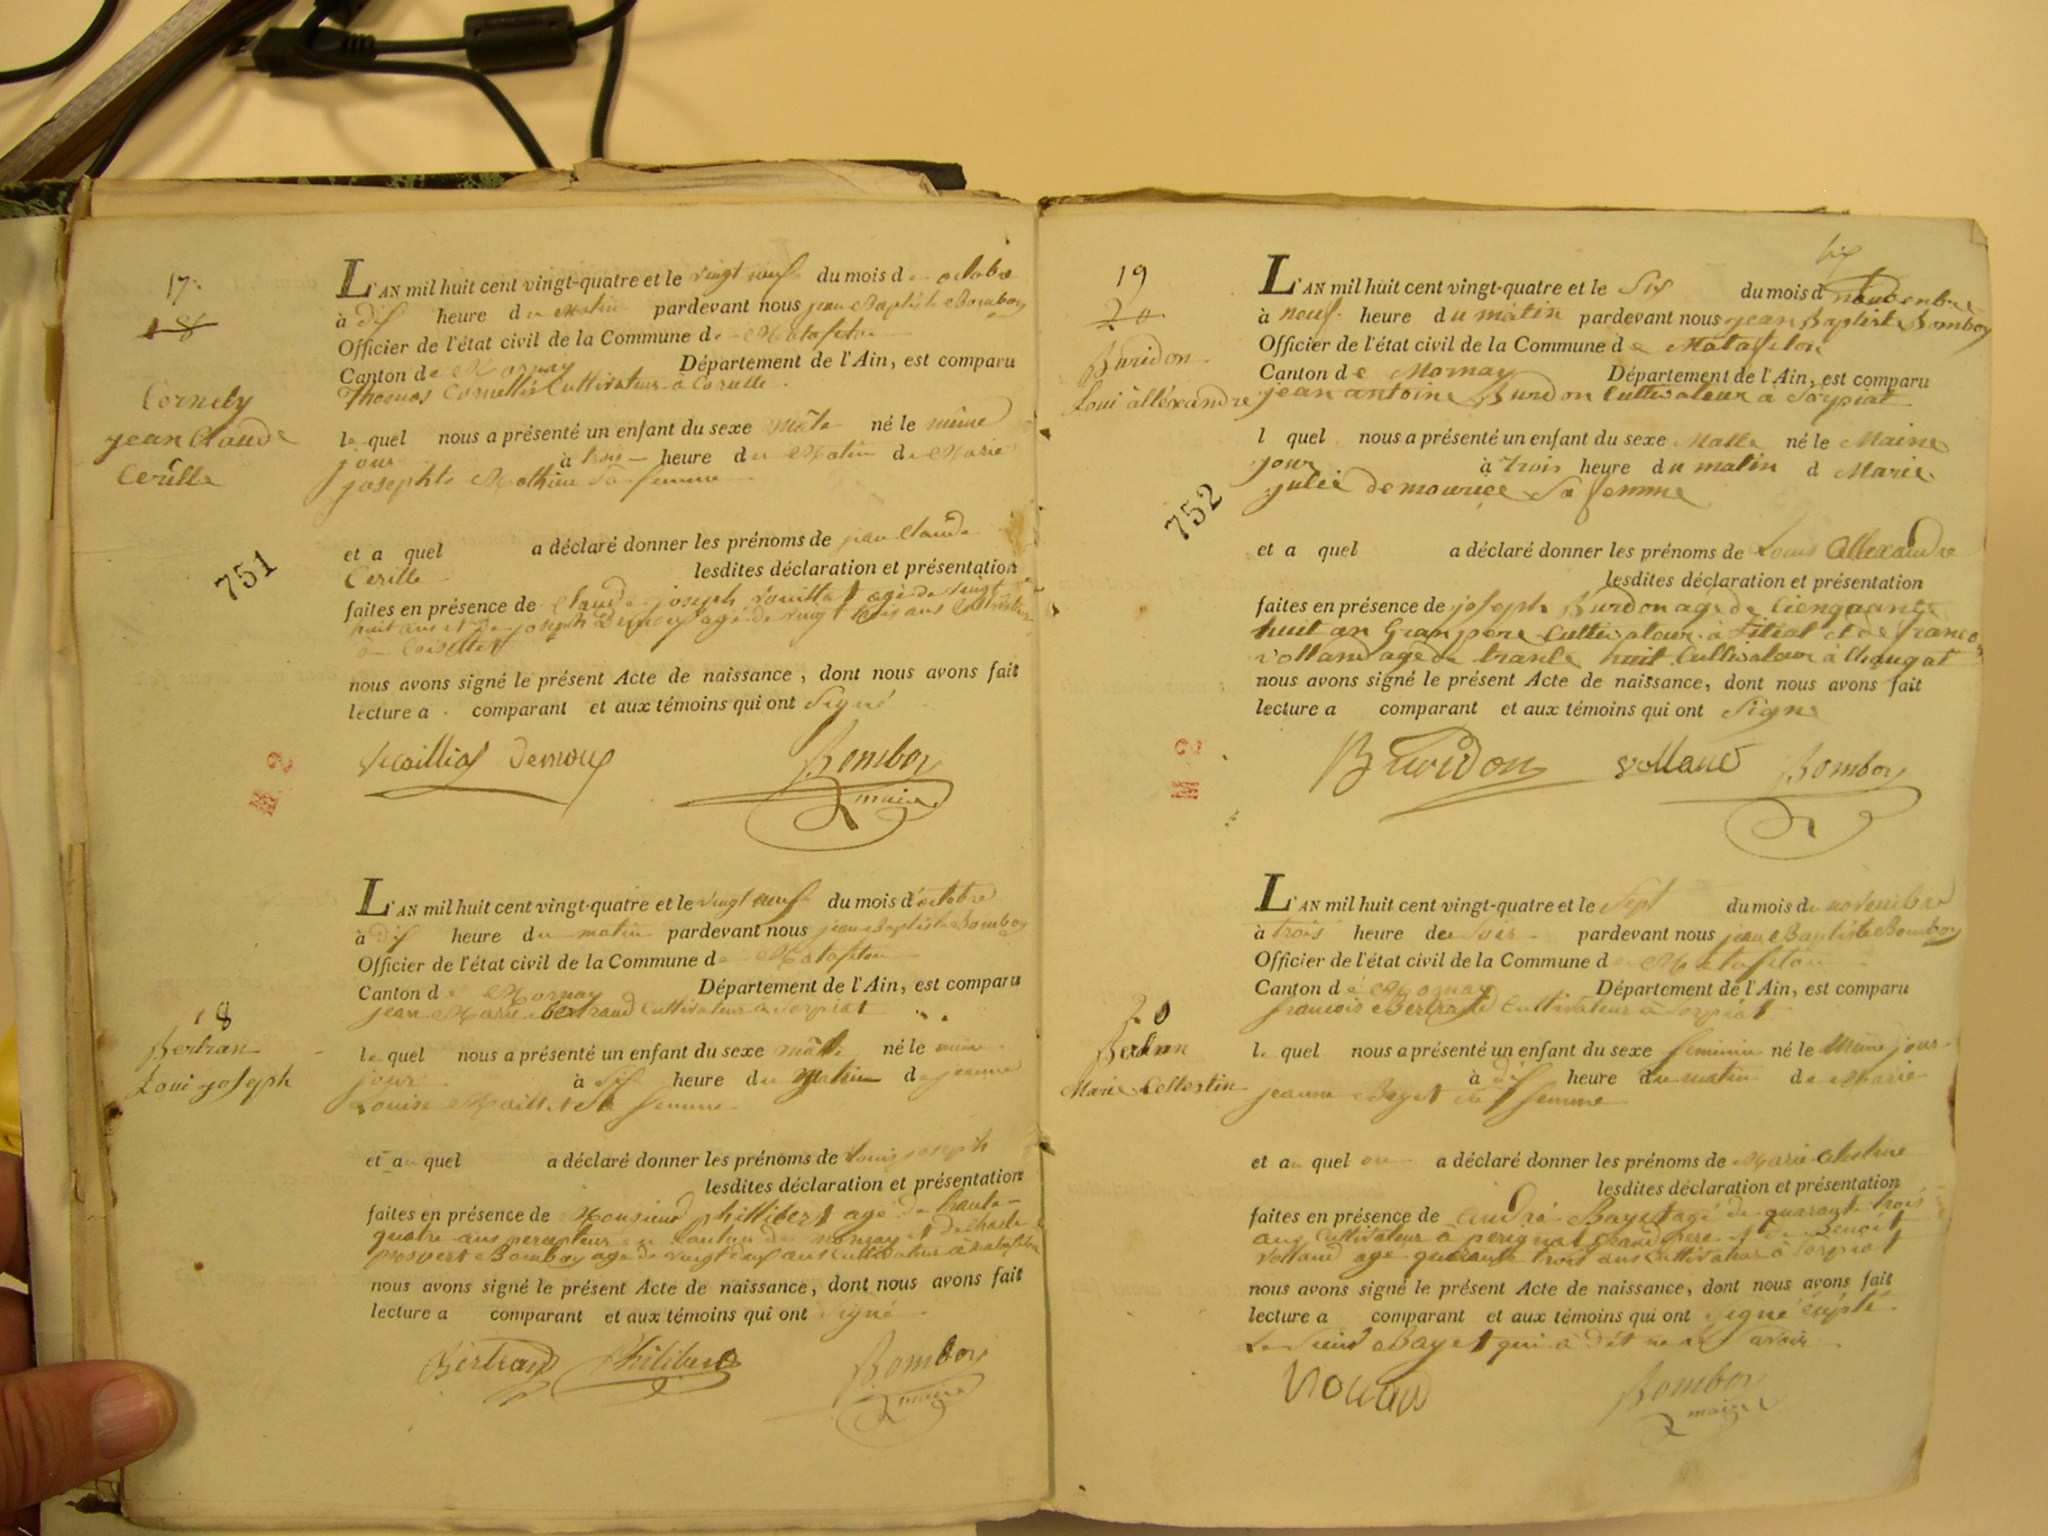 17
18
Cornely
jean Claude
Cerille
751
L'AN mil huit cent vingt-quatre et le vingt neuf du mois de octobre
à dix heure du Matin pardevant nous jean Baptiste Bomboy
Officier de l'état civil de la Commune de Matafelon
Canton de Mornay Département de l'Ain, est comparu
Thomas Cultivateur a
le quel nous a présenté un enfant du sexe mâle né le même
jour à trois heure du Matin de Marie
josephte Mathieu sa femme
et a quel a déclaré donner les prénoms de jean Claude
Cerille lesdites déclaration et présentation
faites en présence de Claude joseph agé de vingt
huit ans et de joseph agé de vingt trois ans Cultivateur
à
nous avons signé le présent Acte de naissance, dont nous avons fait
lecture a comparant et aux témoins qui ont Signé
Bomboy
maire
18
Bertran
Loui joseph
L'AN mil huit cent vingt-quatre et le vingt neuf du mois d'octobre
à dix heure du matin pardevant nous jean Baptiste Bomboy
Officier de l'état civil de la Commune de Matafelon
Canton de Mornay Département de l'Ain, est comparu
jean Marie bertrand Cultivateur à Sorpiat
le quel nous a présenté un enfant du sexe mâle né le même
jour à Six heure du Matin de jeanne
Louise Maillet sa femme
et au quel a déclaré donner les prénoms de Louis joseph
lesdites déclaration et présentation
faites en présence de Monsieur phillibert agé de trante
quatre ans percepteur du Canton de et de Charle
Bomboy age de vingt deux ans Cultivateur à Matafelon
nous avons signé le présent Acte de naissance, dont nous avons fait
lecture a comparant et aux témoins qui ont signé
Bertrand Philibert Bomboy
maire
19
20
Buridon
Loui alléxandre
752
six
L'AN mil huit cent vingt-quatre et le Six du mois d novenbre
à neuf heure du matin pardevant nous jean Baptiste Bomboy
Officier de l'état civil de la Commune de Matafelon
Canton de Mornay Département de l'Ain, est comparu
jean antoine Burdon Cultivateur a Sorpiat
l quel nous a présenté un enfant du sexe Malle né le Maine
jour à trois heure du matin d Marie
julie demouriee Sa femme
et a quel a déclaré donner les prénoms de Louis Allexandre
lesdites déclaration et présentation
faites en présence de joseph Burdon age de
huit an Granpere Cultivateur à et de
Volland age de trante huit Cultivateur à Chougat
nous avons signé le présent Acte de naissance, dont nous avons fait
lecture a comparant et aux témoins qui ont Signe
Buridon Volland Bomboy
20
Marie Cellestin
L'AN mil huit cent vingt-quatre et le Sept du mois de novembre
à trois heure de Soir pardevant nous jean Baptiste Bomboy
Officier de l'état civil de la Commune de Matafelon
Canton de Mornay Département de l'Ain, est comparu
francois Bertrand Cultivateur à Sorpiat
le quel nous a présenté un enfant du sexe feminin né le même jour
à dix heure du matin de Marie
jeanne Bayet sa femme
et au quel on a déclaré donner les prénoms de Marie
lesdites déclaration et présentation
faites en présence de André Bayet agé de quarante trois
ans Cultivateur à Grand pere et de Benoit
Volland age quarante trois ans Cultivateur à Sorpiat
nous avons signé le présent Acte de naissance, dont nous avons fait
lecture a comparant et aux témoins qui ont signé
Le Sieur Bayet qui à dit ne le savoir
Bomboy
maire